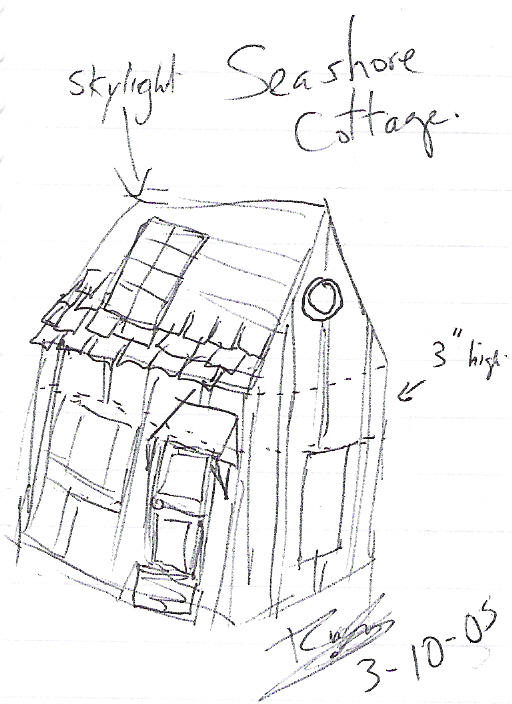 Skylight
Seashore
Cottage.
3" high.
3-10-05